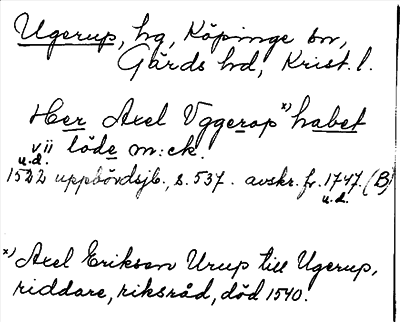 Ugerup, hg, Köpinge sn,
Gärds hd, Krist. l.
Her Axel Vggerop x) habet
vii löde m:ck.
u.d.
1522 uppbördsjb., s. 537. avskr. fr. 1747. (B)
u.d.
x) Axel Eriksen Urup till Ugerup,
riddare, riksråd, död 1540.